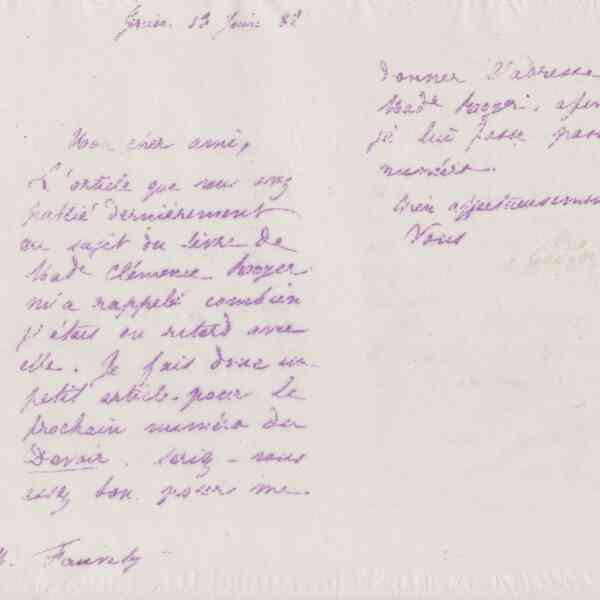 Guise. 13 Juin 82
Mon cher ami,
L'article que vous avez
publié dernièrement
au sujet du livre de
Made Clémence Royer
m'a rappelé combien
j'étais en retard avec
elle. Je fais donc un
petit article pour le
prochain numéro du
Devoir. Seriez-vous
assez bon pour me
M. Fauvety
donner l'adresse
Made Royer, afin
je lui fasse pas
numéro.
Bien affectueusement
Vous
Godin